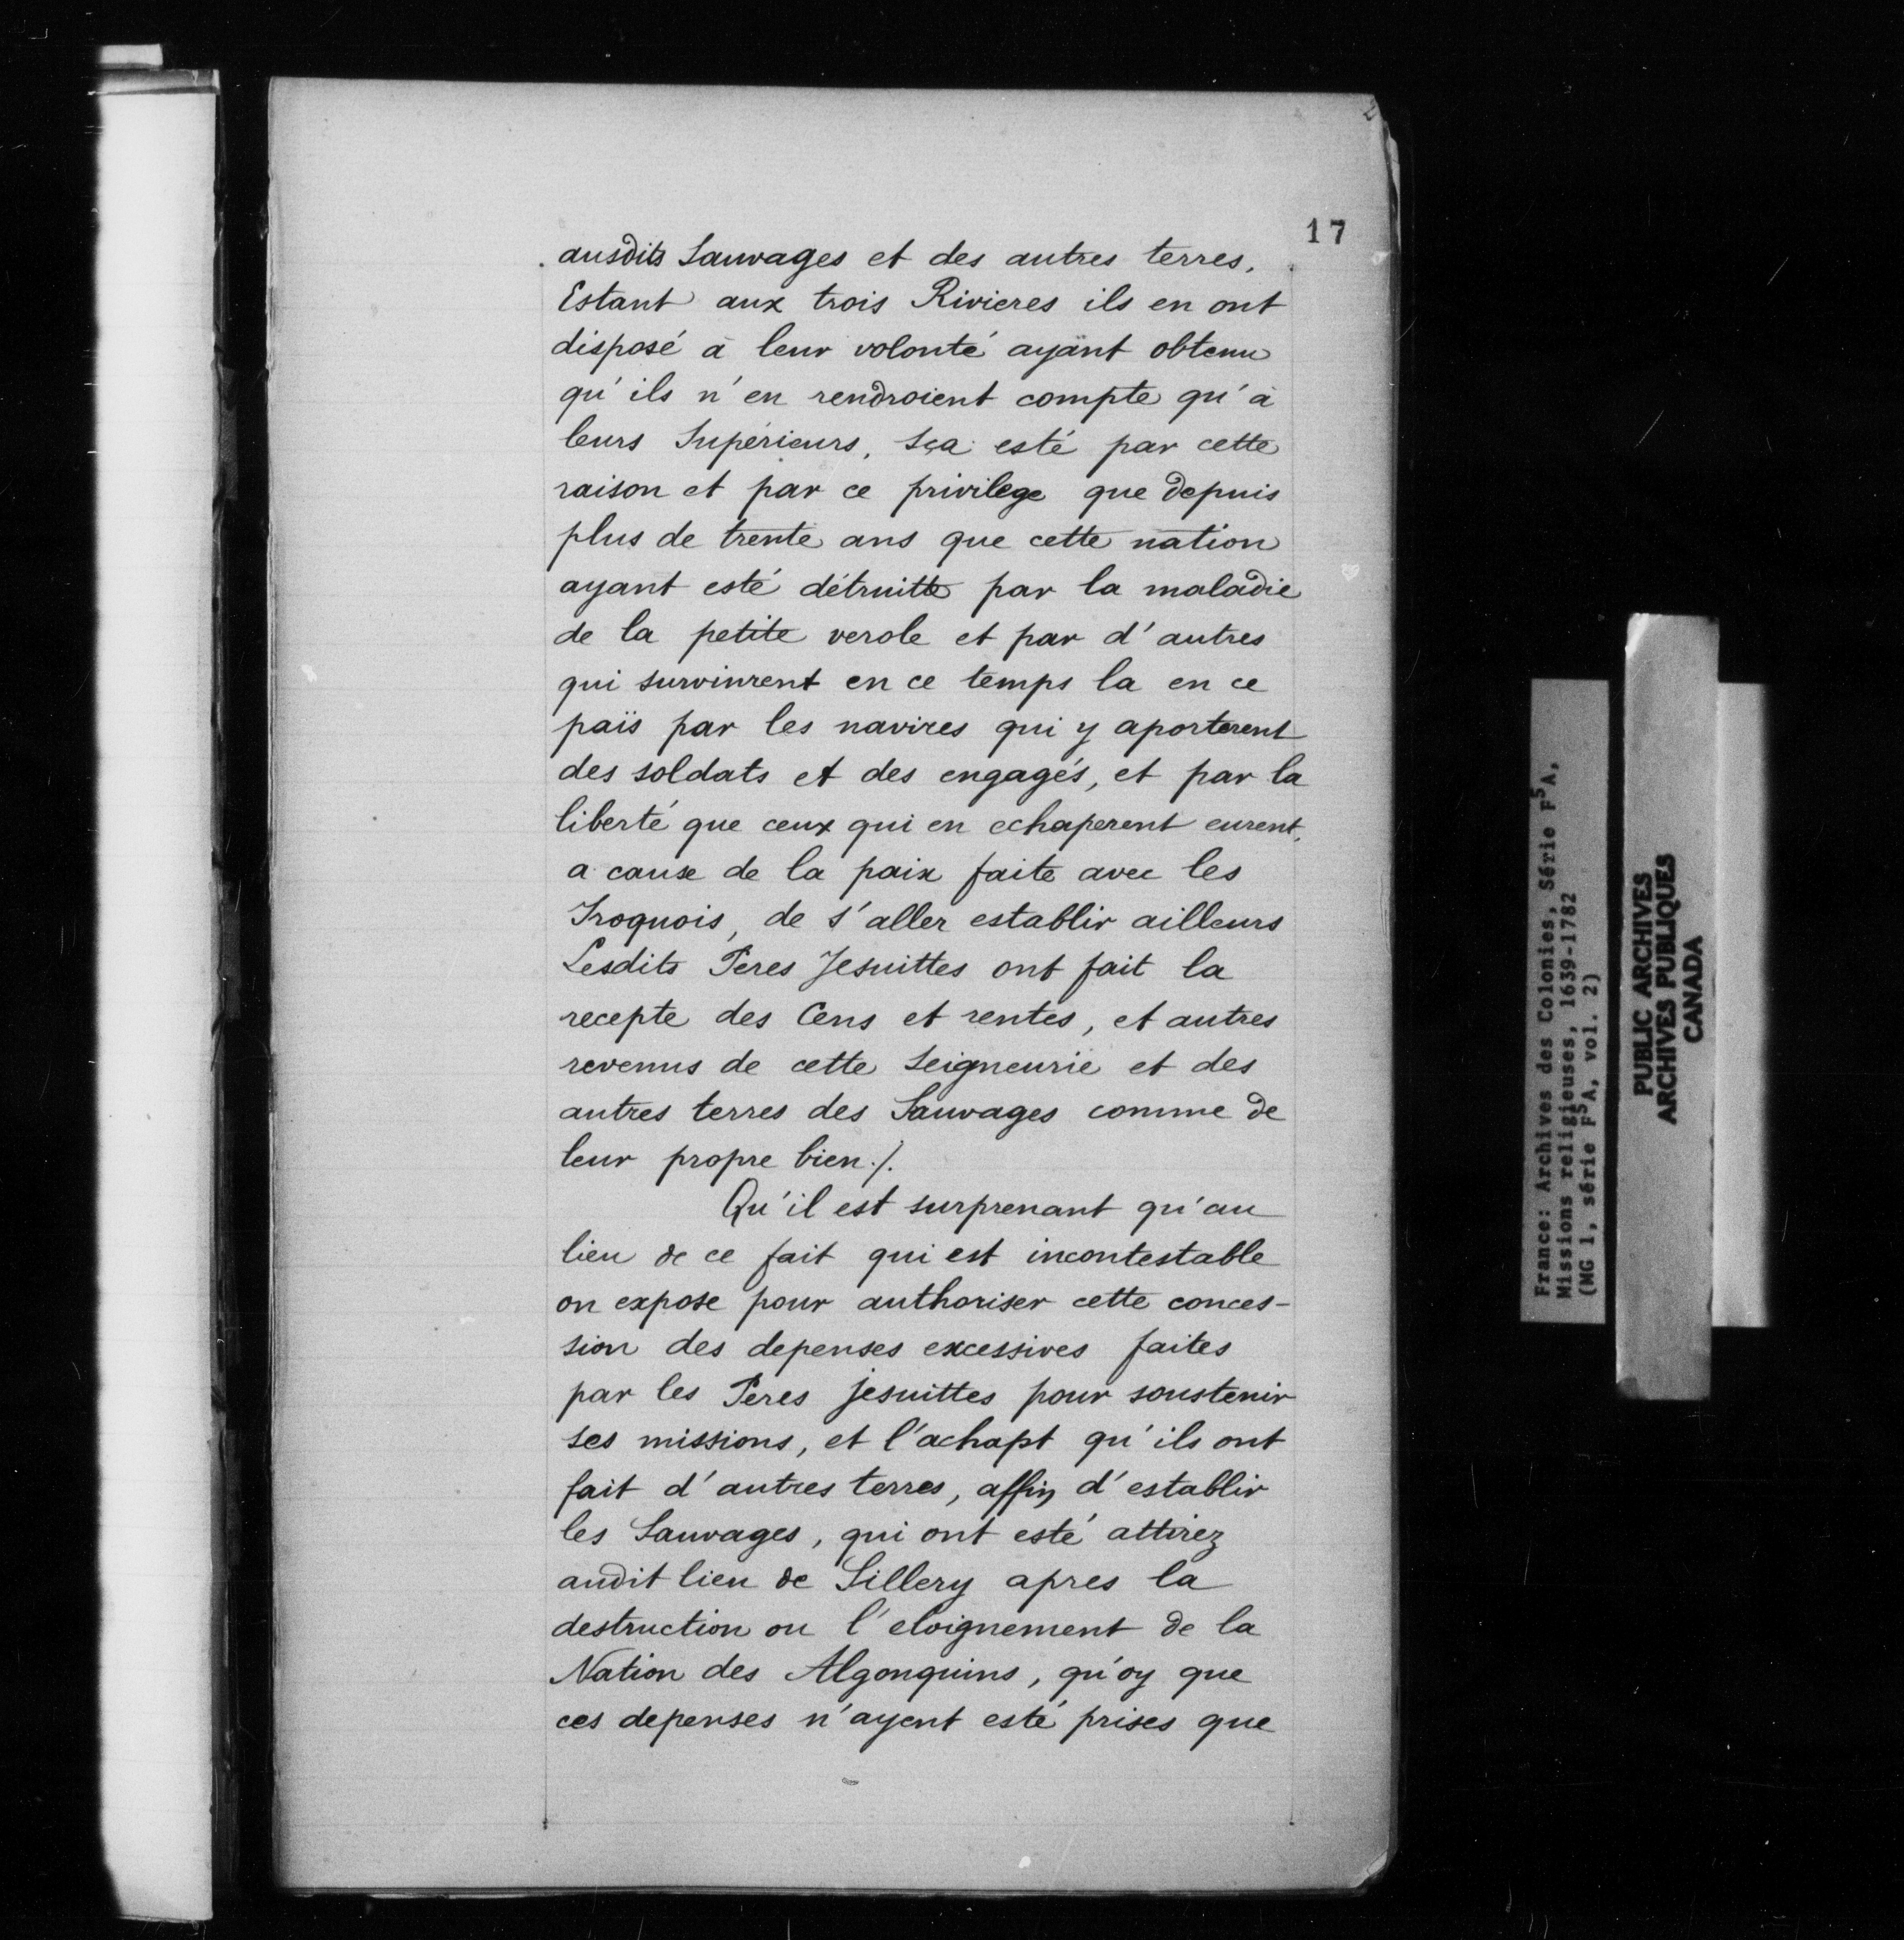 17
ausdits Sauvages et des autres terres.
Estant aux trois Rivieres ils en ont
disposé à leur volonté ayant obtenu
qu'ils n'en rendroient compte qu'à
leurs Supérieurs, sça esté par cette
raison et par ce privilege que depuis
plus de trente ans que cette nation
ayant esté détruitte par la maladie
de la petite verole et par d'autres
qui survinrent en ce temps la en ce
païs par les navires qui y aporterent
des soldats et des engagés, et par la
liberté que ceux qui en echaperent eurent,
a cause de la paix faite avec les
Iroquois, de s'aller establir ailleurs
Lesdits Peres Jesuittes ont fait la
recepte des Cens et rentes, et autres
revenus de cette Seigneurie et des
autres terres des Sauvages comme de
leur propre bien ./.
Qu'il est surprenant qu'au
lieu de ce fait qui est incontestable
on expose pour authoriser cette conces-
sion des depenses excessives faites
par les Peres jesuittes pour soustenir
ses missions, et l'achapt qu'ils ont
fait d'autres terres, affin d'establir
les Sauvages, qui ont esté attirez
audit lieu de Sillery apres la
destruction ou l'eloignement de la
Nation des Algonquins, qu'oy que
ces depenses n'ayent esté prises que
France: Archives des Colonies, Série F5A,
Missions religieuses, 1639-1782
(MG 1, série F5A, vol. 2)
PUBLIC ARCHIVES
ARCHIVES PUBLIQUES
CANADA